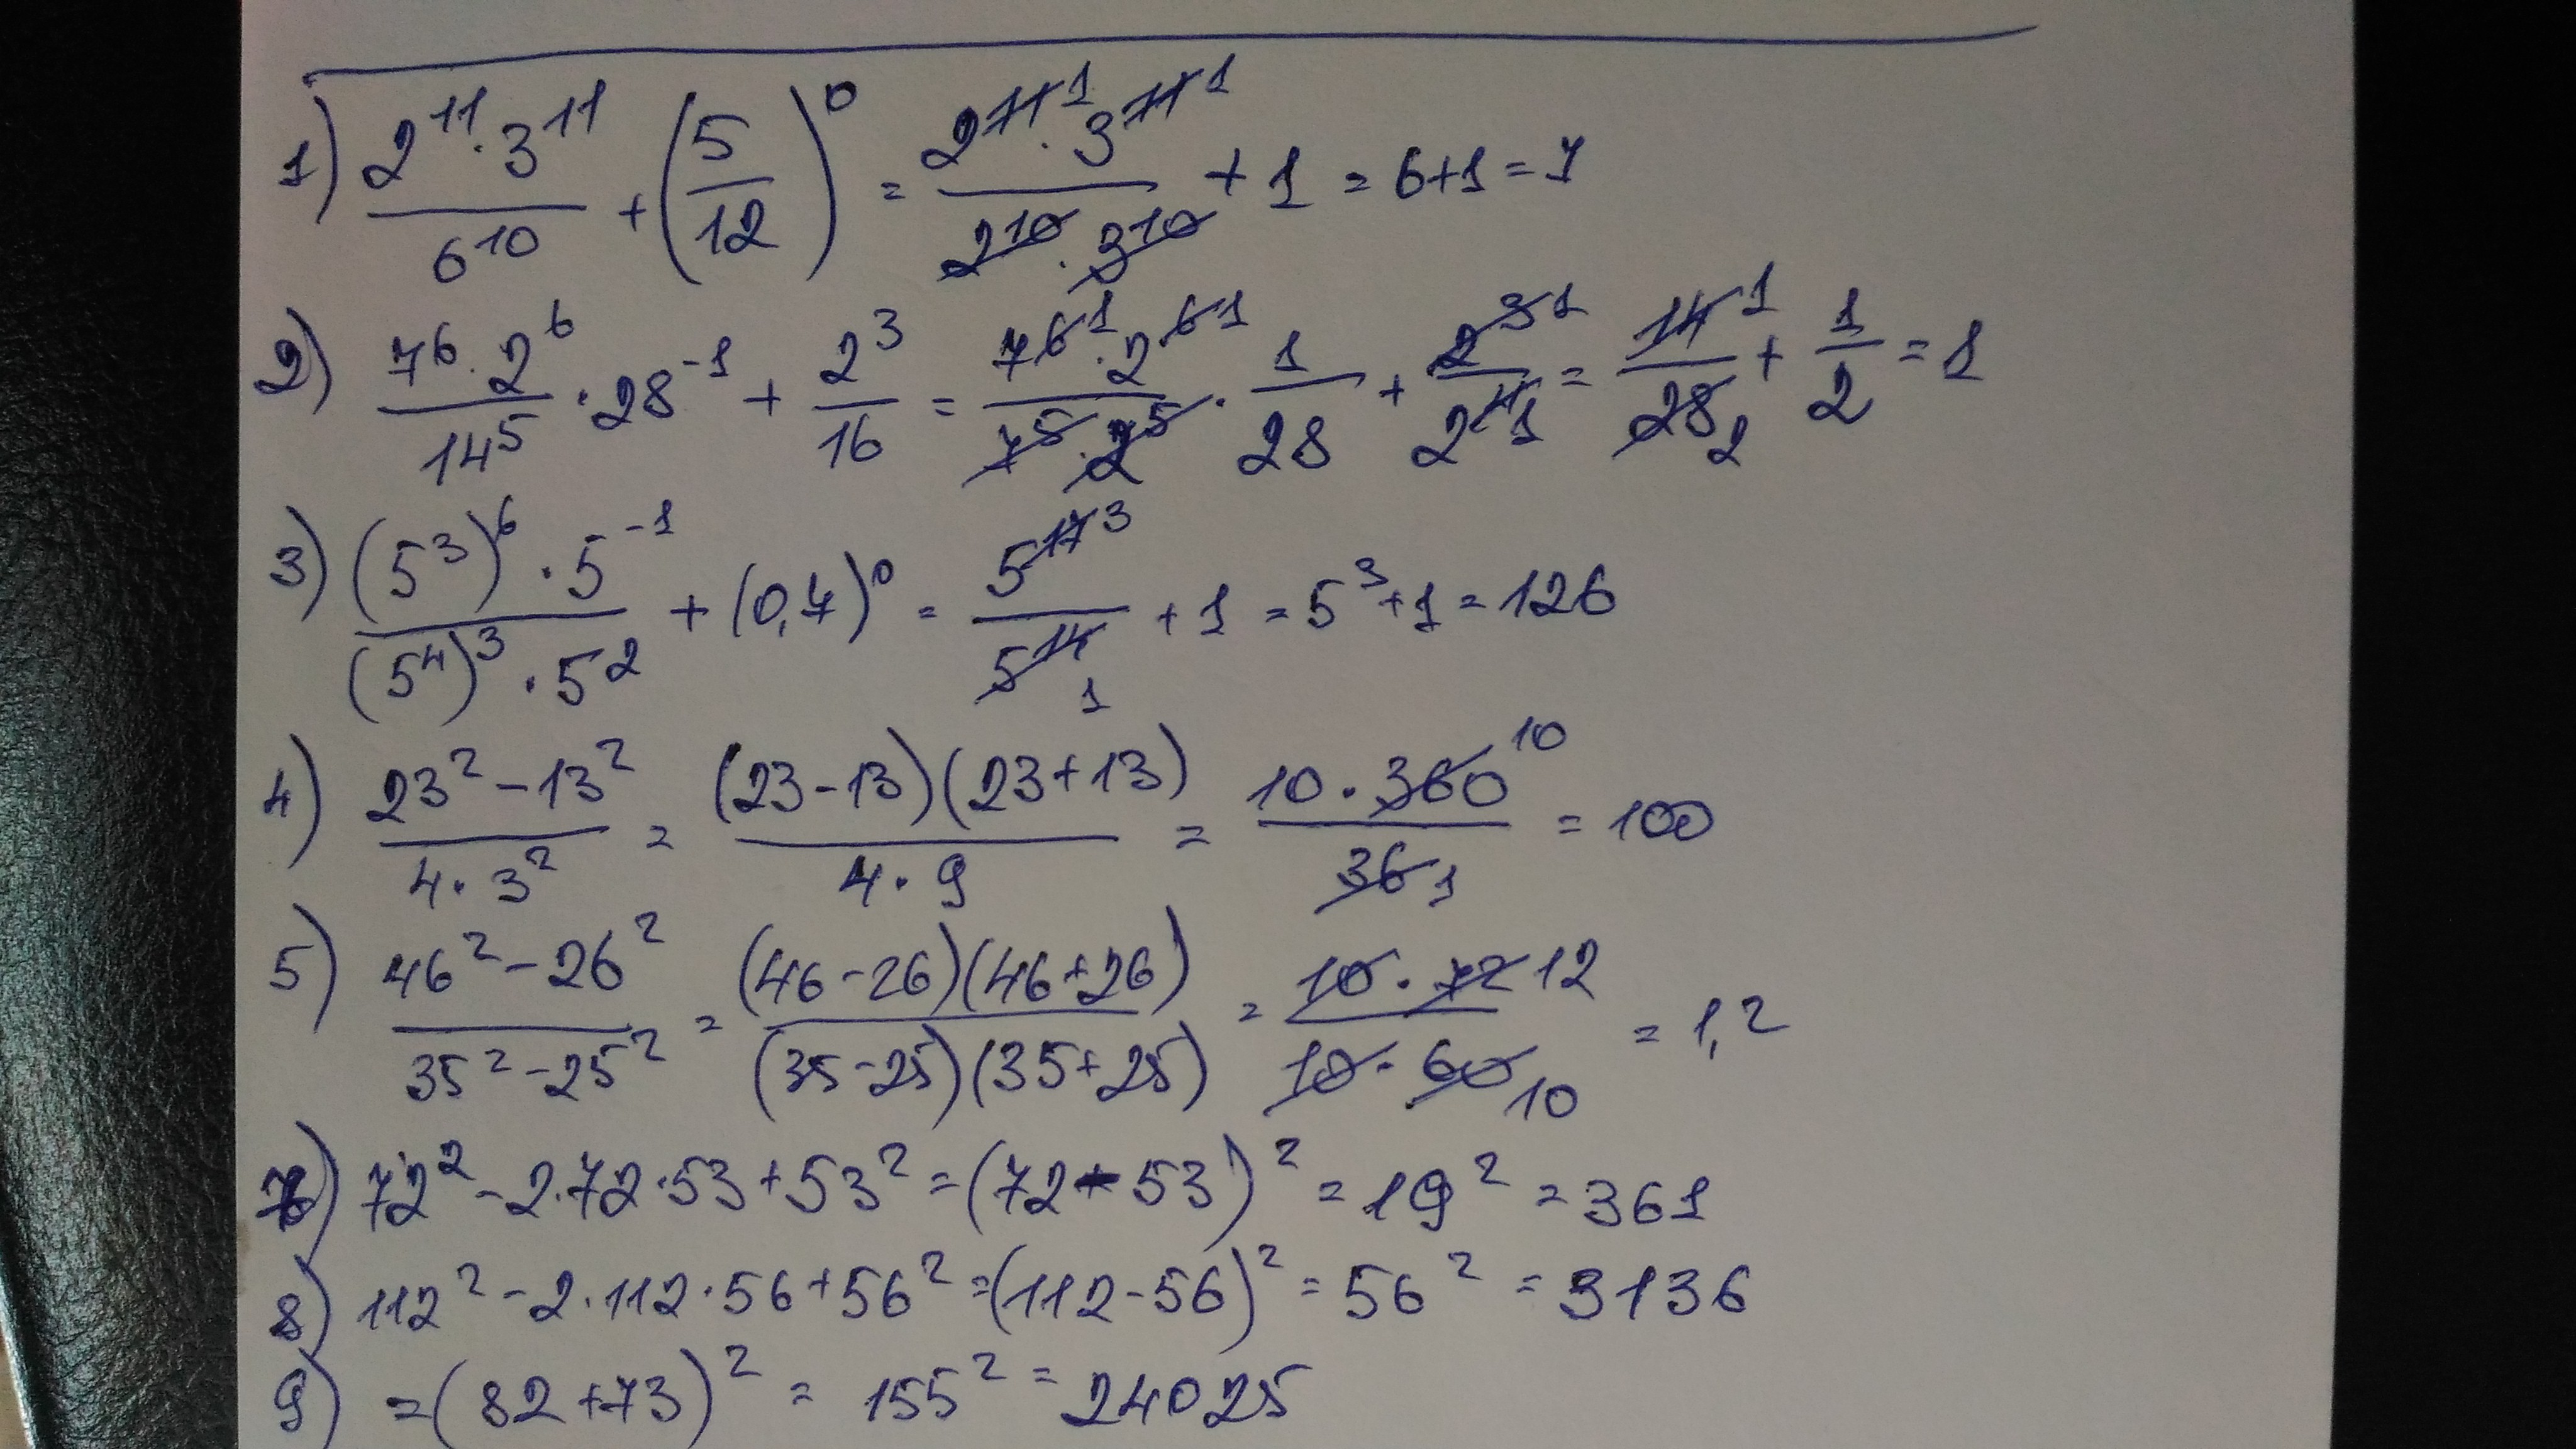 1) \frac{2^{11} \cdot 3^{11}}{6^{10}} + \left(\frac{5}{12}\right)^0 = \frac{2^{11\,1} \cdot 3^{11\,1}}{2^{10} \cdot 3^{10}} + 1 = 6+1 = 7
2) \frac{7^6 \cdot 2^6}{14^5} \cdot 28^{-1} + \frac{2^3}{16} = \frac{7^{6\,1} \cdot 2^{6\,1}}{7^5 \cdot 2^5} \cdot \frac{1}{28} + \frac{2^{3\,1}}{2^{4\,1}} = \frac{14\,1}{28\,2} + \frac{1}{2} = 1
3) \frac{(5^3)^6 \cdot 5^{-1}}{(5^4)^3 \cdot 5^2} + (0,4)^0 = \frac{5^{17\,3}}{5^{14}\,1} + 1 = 5^3+1 = 126
4) \frac{23^2 - 13^2}{4 \cdot 3^2} = \frac{(23-13)(23+13)}{4 \cdot 9} = \frac{10 \cdot 360\,10}{36\,1} = 100
5) \frac{46^2 - 26^2}{35^2 - 25^2} = \frac{(46-26)(46+26)}{(35-25)(35+25)} = \frac{10 \cdot 72\,12}{10 \cdot 60\,10} = 1,2
7) 72^2 - 2 \cdot 72 \cdot 53 + 53^2 = (72 - 53)^2 = 19^2 = 361
8) 112^2 - 2 \cdot 112 \cdot 56 + 56^2 = (112-56)^2 = 56^2 = 3136
9) = (82+73)^2 = 155^2 = 24025